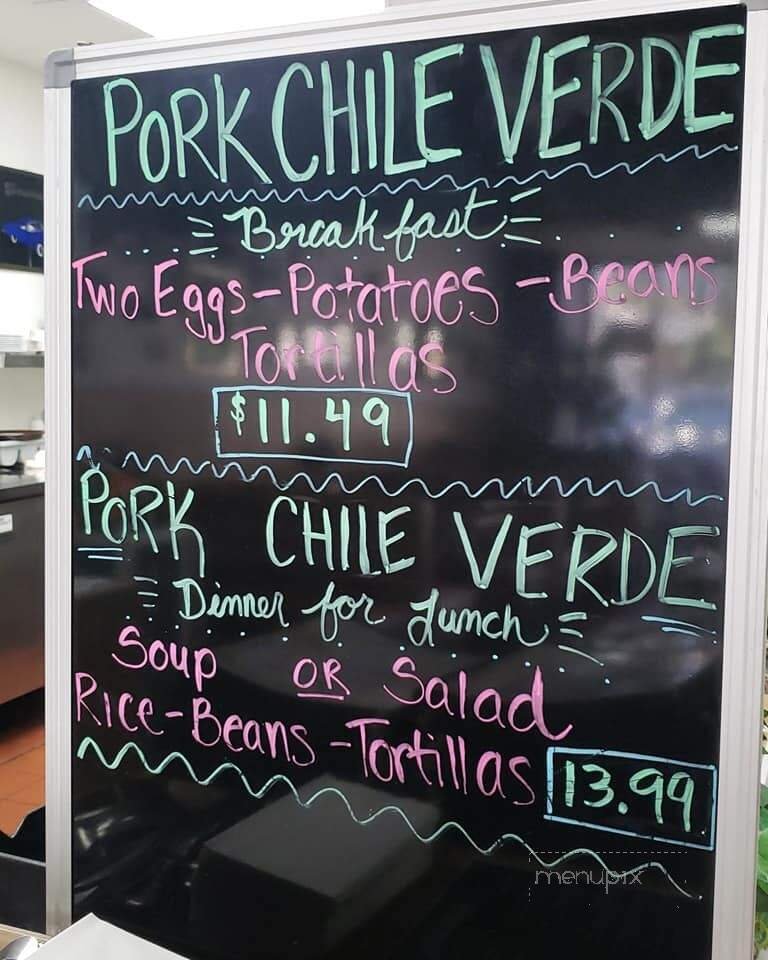 PORK CHILE VERDE
Breakfast
Two Eggs-Potatoes-Beans
Tortillas
$11.49
PORK CHILE VERDE
Dinner for Lunch
Soup OR Salad
Rice-Beans-Tortillas 13.99
menupix